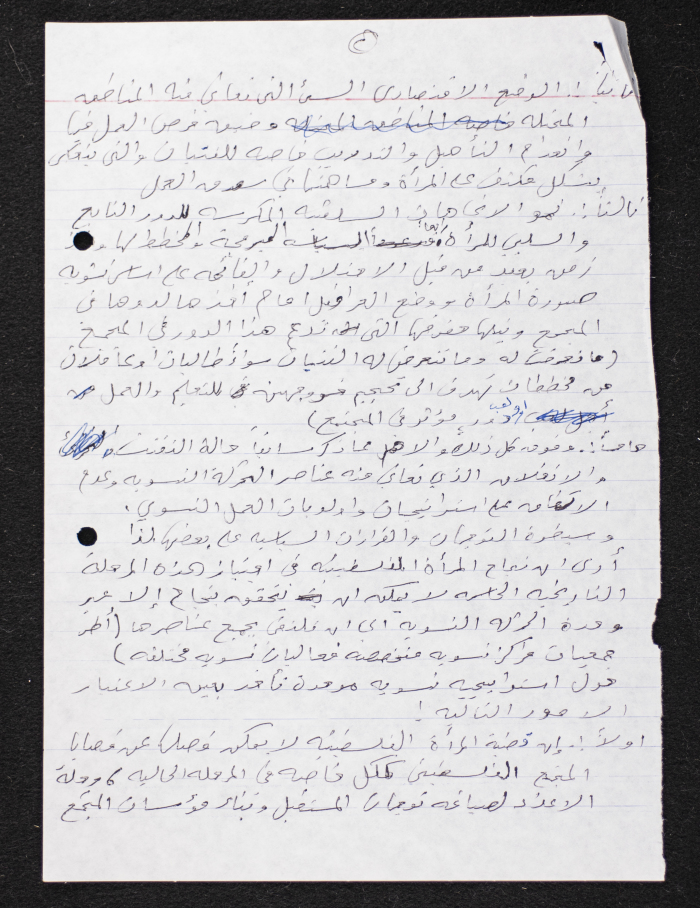 ٣
ثانياً :. الوضع الاقتصادي السيئ التي تعاني منه المناطق
المحتلة خاصة المناطق المحتلة وضيق فرص العمل فيها
وانعدام التأهيل والتدريب خاصة للفتيات والتي ينعكس
بشكل مكثف على المرأة ومساهمتها في سوق العمل
ثالثاً :. نمو الاتجاهات السلفية المكرسة للدور التابع
والسلبي للمرأة السياسة المبرمجة والمخطط لها
زمن بعيد من قبل الاحتلال والقائمة على اساس تشويه
صورة المرأة ووضع العراقيل امام اخذها لدورها في
المجتمع ونيلها حقوقها التي تدعم هذا الدور في المجتمع
(ما تعرضت له وما تتعرض له الفتيات سواء طالبات او عاملات
من مخططات تهدف الى تحجيم خروجهن للتعليم والعمل
او لعب دور مؤثر في المجتمع)
خامساً :. وفوق كل ذلك والاهم مما ذكر سابقاً حالة التفتت
والانفلاش الذي تعاني منه عناصر الحركة النسوية وعدم
الاتفاق على استراتيجيات واولويات العمل النسوي .
وسيطرة التوجهات والقرارات السياسية على بعضها لذا
أرى ان نجاح المرأة الفلسطينية في اجتياز هذه المرحلة
التاريخية الحاسمة لا يمكن ان يتحقق بنجاح إلا عبر
وحدة الحركة النسوية اي ان تلتقي جميع عناصرها (أطر
جمعيات مراكز نسوية متخصصة فعاليات نسوية مختلفة)
حول استراتيجية نسوية موحدة تأخذ بعين الاعتبار
الامور التالية !
اولاً :. إن قضية المرأة الفلسطينية لا يمكن فصلها عن قضايا
المجتمع الفلسطيني ككل خاصة في المرحلة الحالية ، مرحلة
الاعداد لصياغة توجهات المستقبل وبناء مؤسسات المجتمع